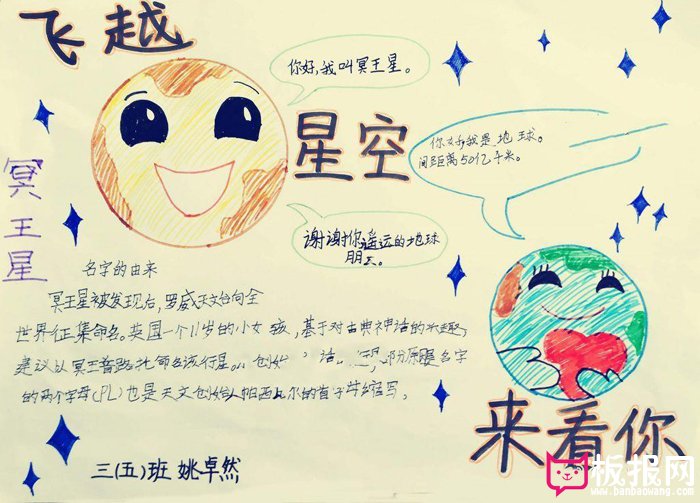 飞越
星空
来看你
冥王星
你好,我叫冥王星。
你好,我是地球。
间距离50亿千米。
谢谢你遥远的地球
朋友。
名字的由来
冥王星被发现后,罗威天文台向全
世界征集命名。英国一个11岁的小女孩,基于对古典神话的兴趣,
建议以冥王普路托命名该行星。
名字
的两个字母(PL)也是天文创始人帕西瓦尔的首字母缩写。
三(五)班 姚卓然
板报网
www.banbaowang.com